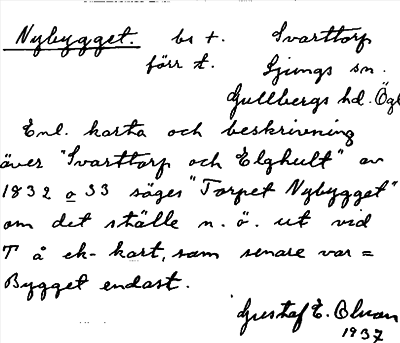 Nybygget. bs t. Svarttorp
förr t. Ljungs sn.
Gullbergs hd. Ögl
Enl. karta och beskrivning
över "Svarttorp och Elghult" av
1832 o 33 säges "Torpet Nybygget"
om det ställe n. ö. ut vid
T å ek-kart, som senare var =
Bygget endast.
Gustaf E.
1937